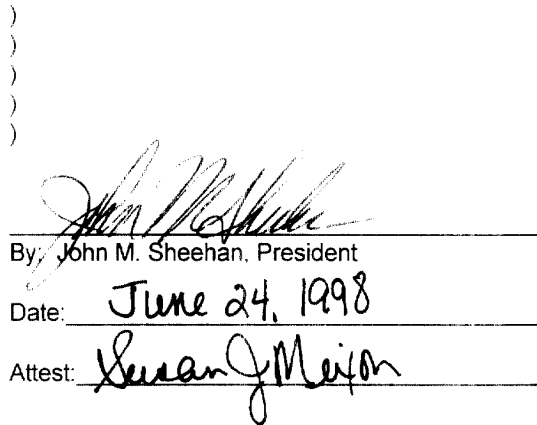 )
)
)
)
)
John M Sheehan
By: John M. Sheehan, President
Date: June 24, 1998
Attest: Susan J Meixon